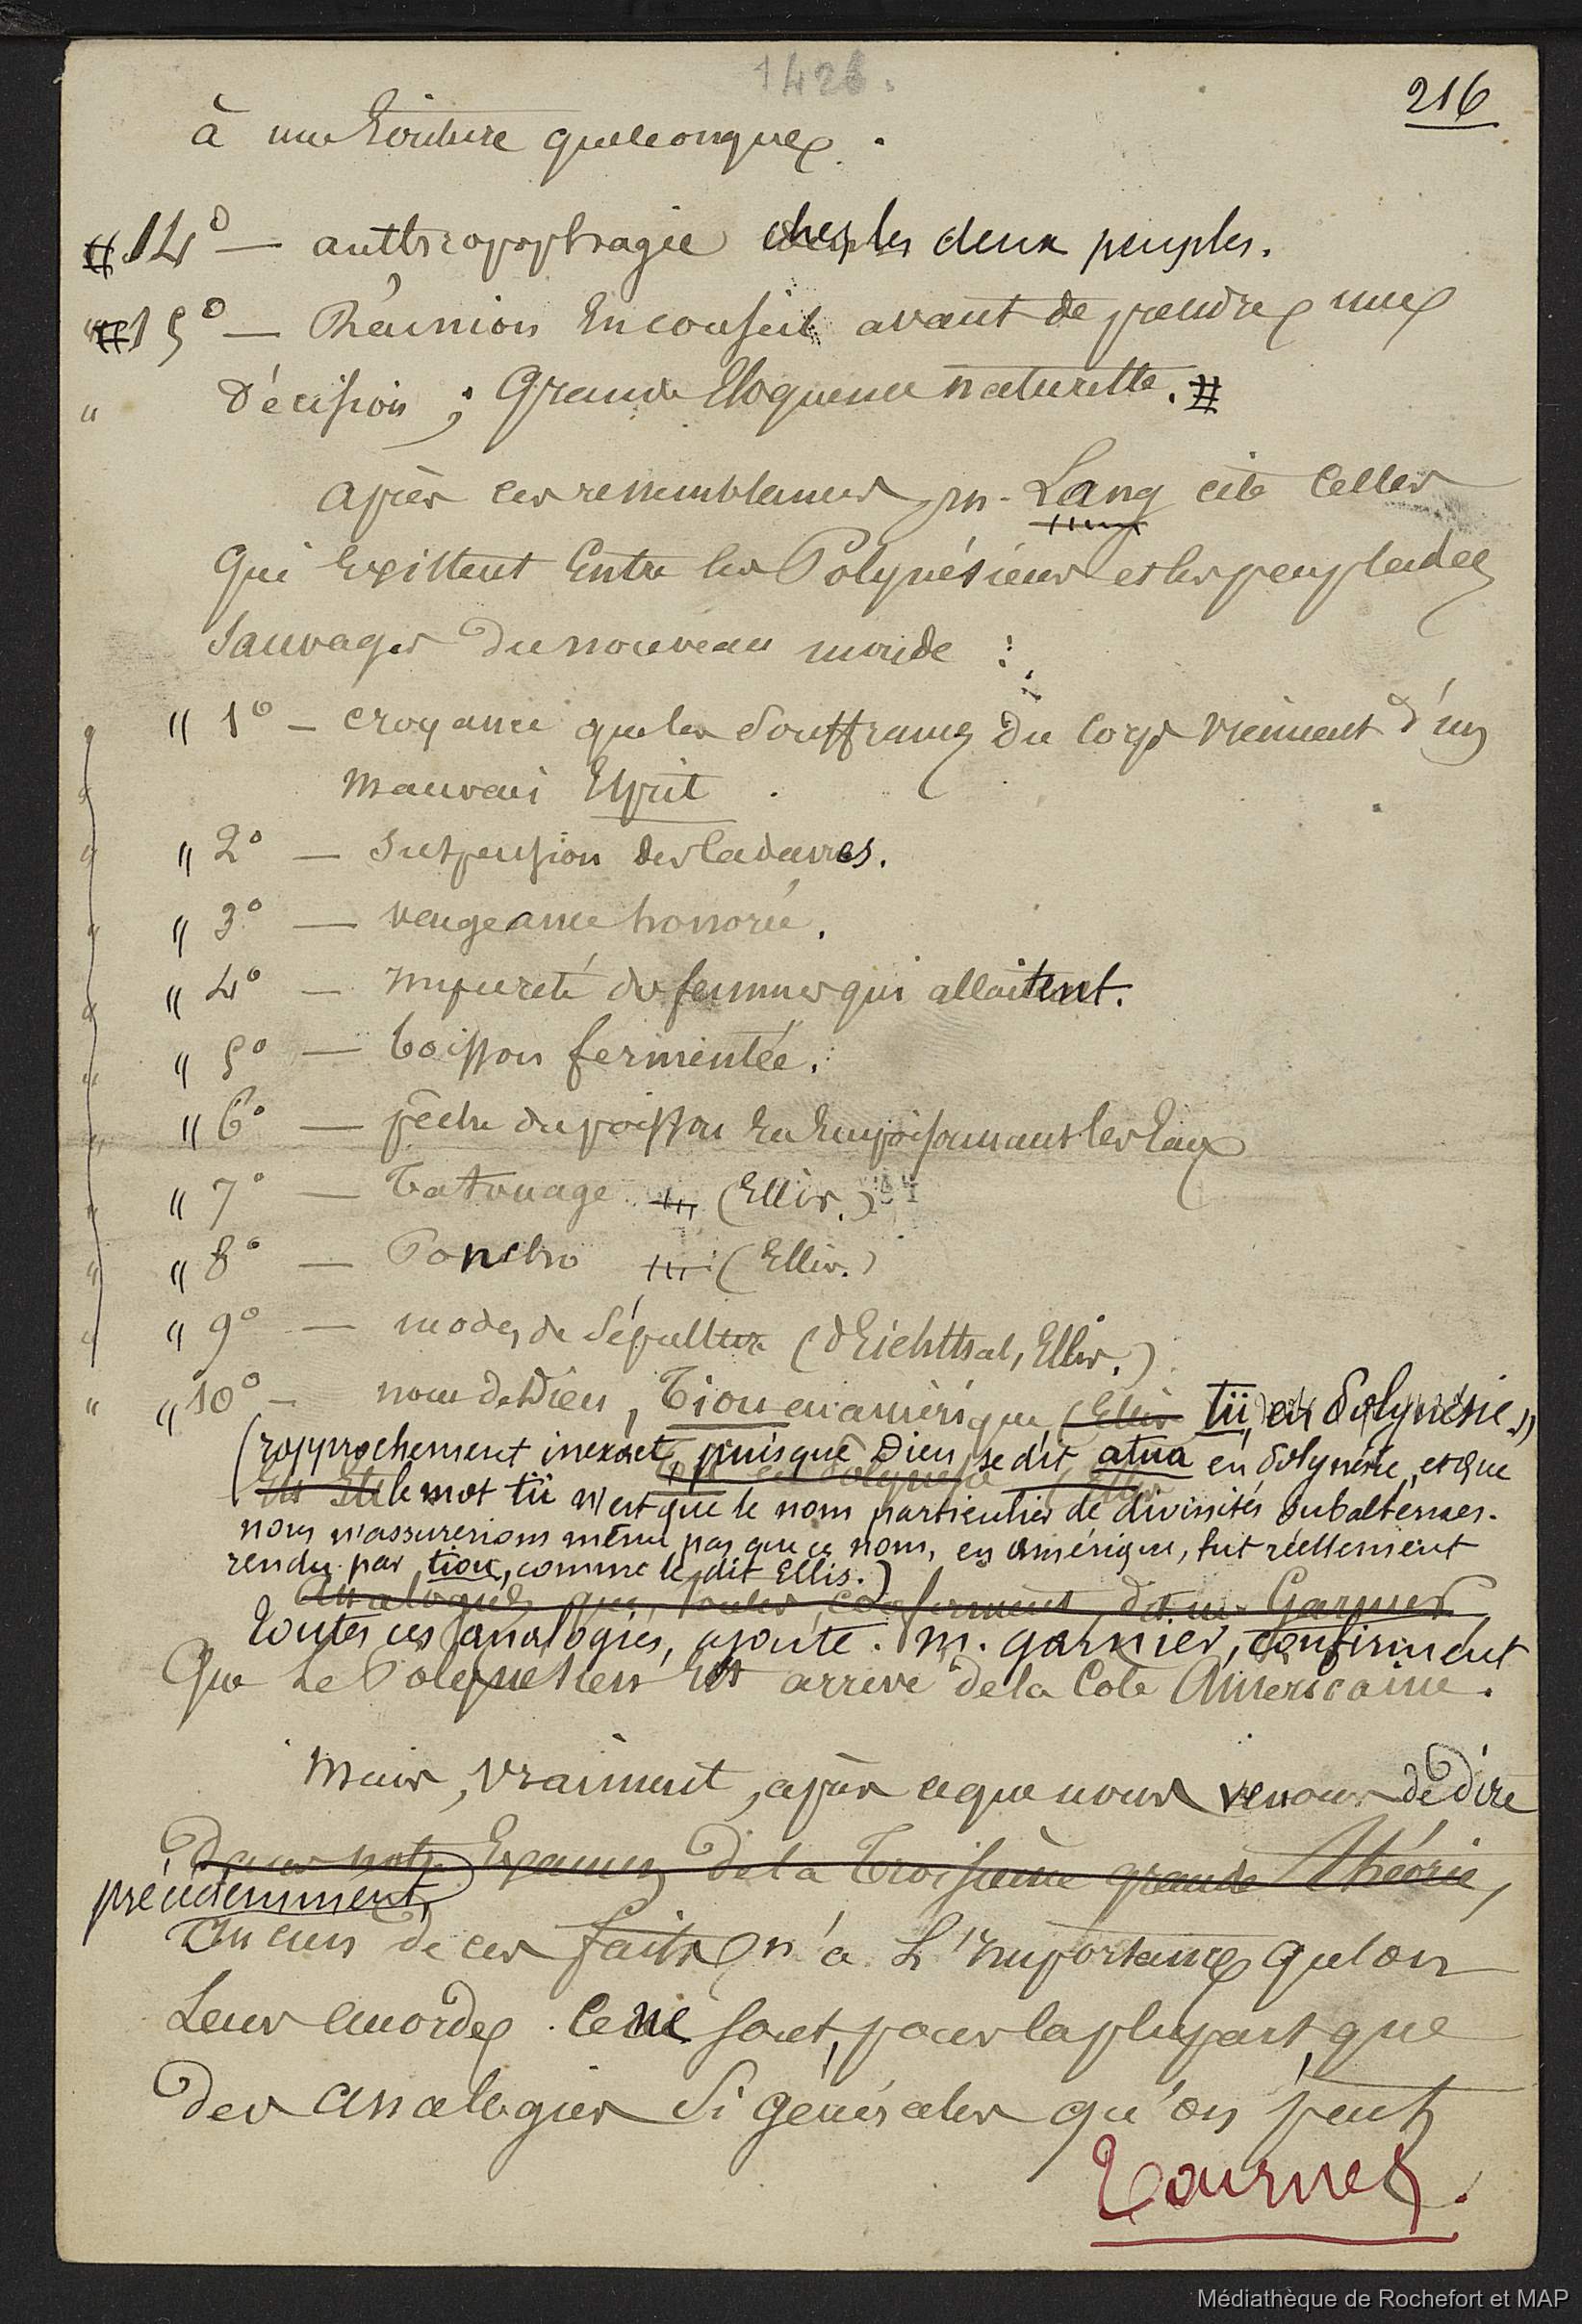 1426.
216
à une Ecriture quelconque.
# 14° — anthropophagie chez les deux peuples.
# 15° — Réunion En conseil avant de prendre une
" décision ; Grande Eloquence naturelle. #
après ces ressemblances, m. Lang cite Celles
Qui Existent Entre les Polynésiens et les peuplades
Sauvages du nouveau monde :
" 1° — croyance que les Souffrances du Corps viennent d'un
mauvais Esprit.
" 2° — suspension des Cadavres.
" 3° — vengeance honorée.
" 4° — impureté des femmes qui allaitent.
" 5° — boisson fermentée.
" 6° — pêche du poisson En Empoisonnant les Eaux
" 7° — Tatouage (Ellis.)
" 8° — Poncho (Ellis.)
" 9° — modes de Sépulture (d'Eichthal, Ellis.)
" " 10° — nom de Dieu, Tiou en amérique, (Ellis tii, en Polynésie.")
(rapprochement inexact, puisque Dieu se dit atua en Polynésie, et que
le mot tii n'est que le nom particulier de divinités subalternes.
nous n'assurerions même pas que ce nom, en amérique, fut réellement
rendu par tiou, comme le dit Ellis.)
Analogies qui, toutes, confirment, dit m. Garnier
Toutes ces analogies, ajoute m. garnier, confirment
Que Le Polynésien Est arrivé de la Côte Américaine.
Mais, vraiment, après ce que nous venons de dire
Dans notre Examen de la Troisième grande Théorie,
précédemment,
Aucun de ces faits n'a L'Importance qu'on
Leur accorde. Ce ne sont, pour la plupart, que
Des Analogies Si générales qu'on peut
Tournez.
Médiathèque de Rochefort et MAP